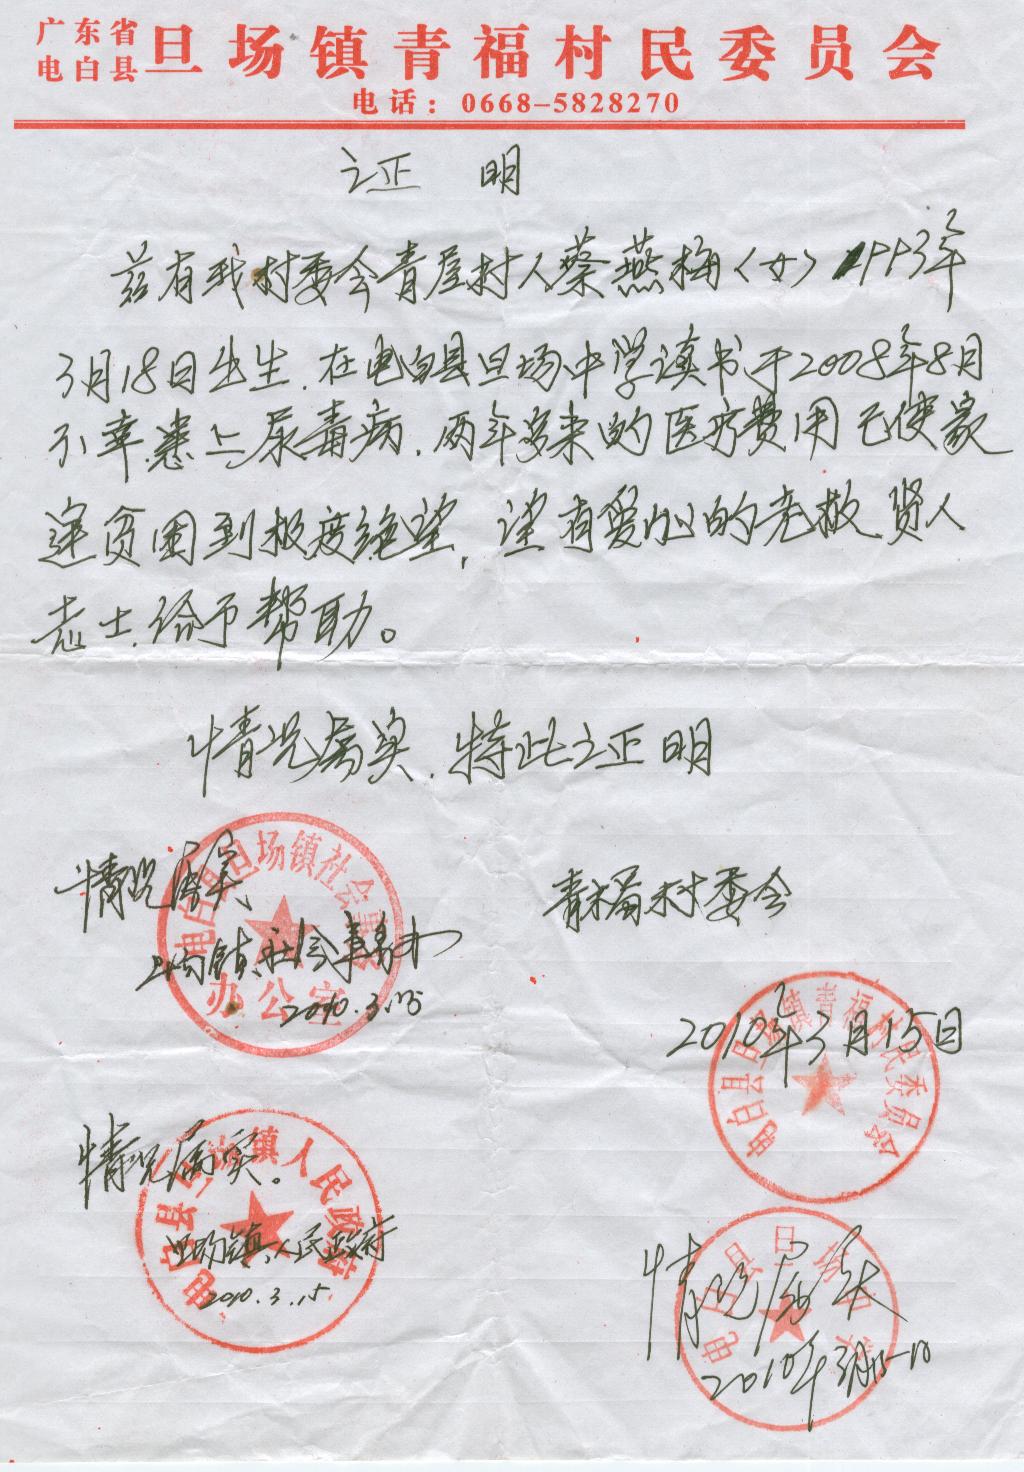 广东省
电白县
旦场镇青福村民委员会
电话：0668-5828270
证 明
兹有我村委会青屋村人蔡燕梅（女）1993年
3月18日出生.在电白县旦场中学读书于2008年8月
不幸患上尿毒病.两年多来的医疗费用已使家
进贫困到极度绝望，望有爱心的 贤人
志士.给予帮助。
情况属实.特此证明
情况属实
旦场镇社会事务办
2010.3.15
电白县旦场镇社会事务
办公室
青福村委会
2010年3月15日
电白县旦场镇青福村民委员会
情况属实。
旦场镇人民政府
2010.3.15
电白县旦场镇人民政府
情况属实
2010年3月
电白县旦场中学